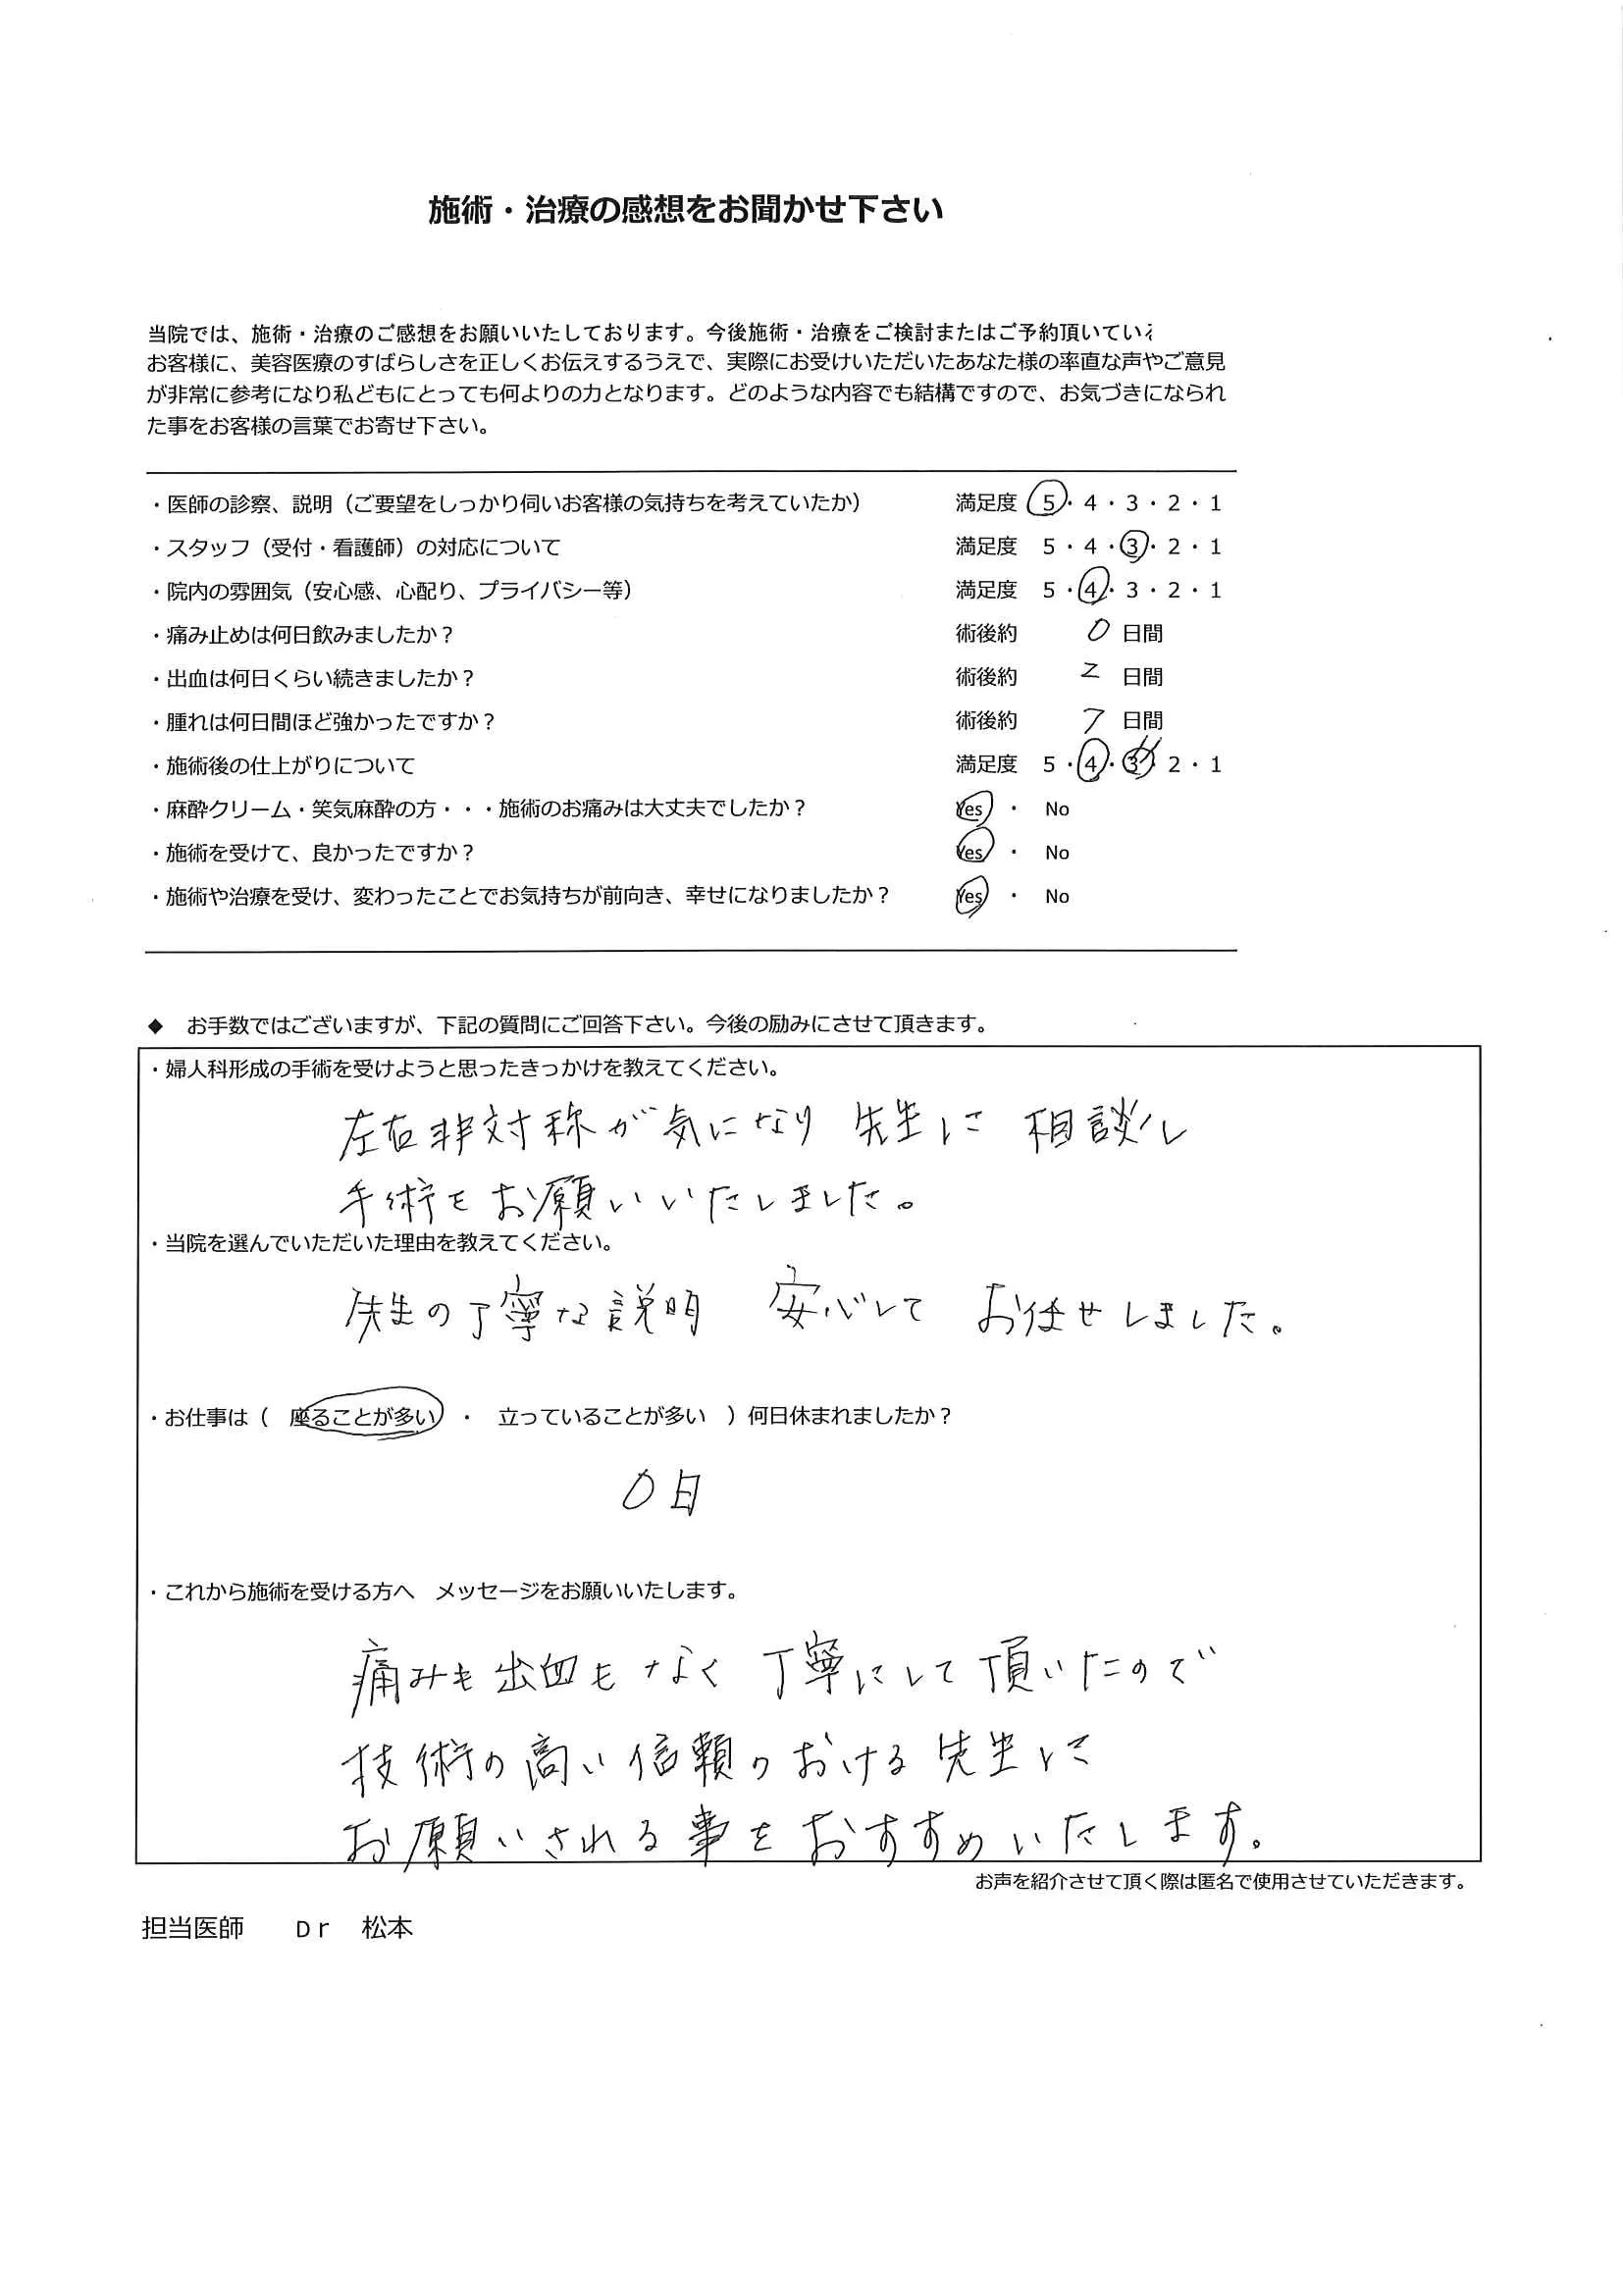 施術・治療の感想をお聞かせ下さい
当院では、施術・治療のご感想をお願いいたしております。今後施術・治療をご検討またはご予約頂いてい
お客様に、美容医療のすばらしさを正しくお伝えするうえで、実際にお受けいただいたあなた様の率直な声やご意見
が非常に参考になり私どもにとっても何よりの力となります。どのような内容でも結構ですので、お気づきになられ
た事をお客様の言葉でお寄せ下さい。
・医師の診察、説明（ご要望をしっかり伺いお客様の気持ちを考えていたか） 満足度 5・4・3・2・1
・スタッフ（受付・看護師）の対応について 満足度 5・4・3・2・1
・院内の雰囲気（安心感、心配り、プライバシー等） 満足度 5・4・3・2・1
・痛み止めは何日飲みましたか？ 術後約 0 日間
・出血は何日くらい続きましたか？ 術後約 2 日間
・腫れは何日間ほど強かったですか？ 術後約 7 日間
・施術後の仕上がりについて 満足度 5・4・3・2・1
・麻酔クリーム・笑気麻酔の方・・・施術のお痛みは大丈夫でしたか？ Yes ・ No
・施術を受けて、良かったですか？ Yes ・ No
・施術や治療を受け、変わったことでお気持ちが前向き、幸せになりましたか？ Yes ・ No
◆ お手数ではございますが、下記の質問にご回答下さい。今後の励みにさせて頂きます。
・婦人科形成の手術を受けようと思ったきっかけを教えてください。
左右非対称が気になり 先生に 相談し
手術をお願いいたしました。
・当院を選んでいただいた理由を教えてください。
先生の丁寧な説明 安心して お任せしました。
・お仕事は（ 座ることが多い ・ 立っていることが多い ）何日休まれましたか？
0日
・これから施術を受ける方へ メッセージをお願いいたします。
痛みも出血もなく 丁寧にして頂いたので
技術の高い信頼のおける先生に
お願いされる事をおすすめいたします。
お声を紹介させて頂く際は匿名で使用させていただきます。
担当医師 Dr 松本